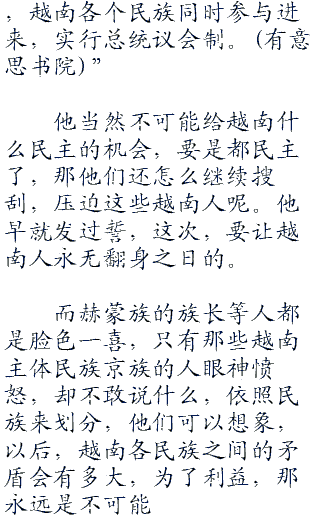 ，越南各个民族同时参与进
来，实行总统议会制。(有意
思书院)”
他当然不可能给越南什
么民主的机会，要是都民主
了，那他们还怎么继续搜
刮，压迫这些越南人呢。他
早就发过誓，这次，要让越
南人永无翻身之日的。
而赫蒙族的族长等人都
是脸色一喜，只有那些越南
主体民族京族的人眼神愤
怒，却不敢说什么，依照民
族来划分，他们可以想象，
以后，越南各民族之间的矛
盾会有多大，为了利益，那
永远是不可能